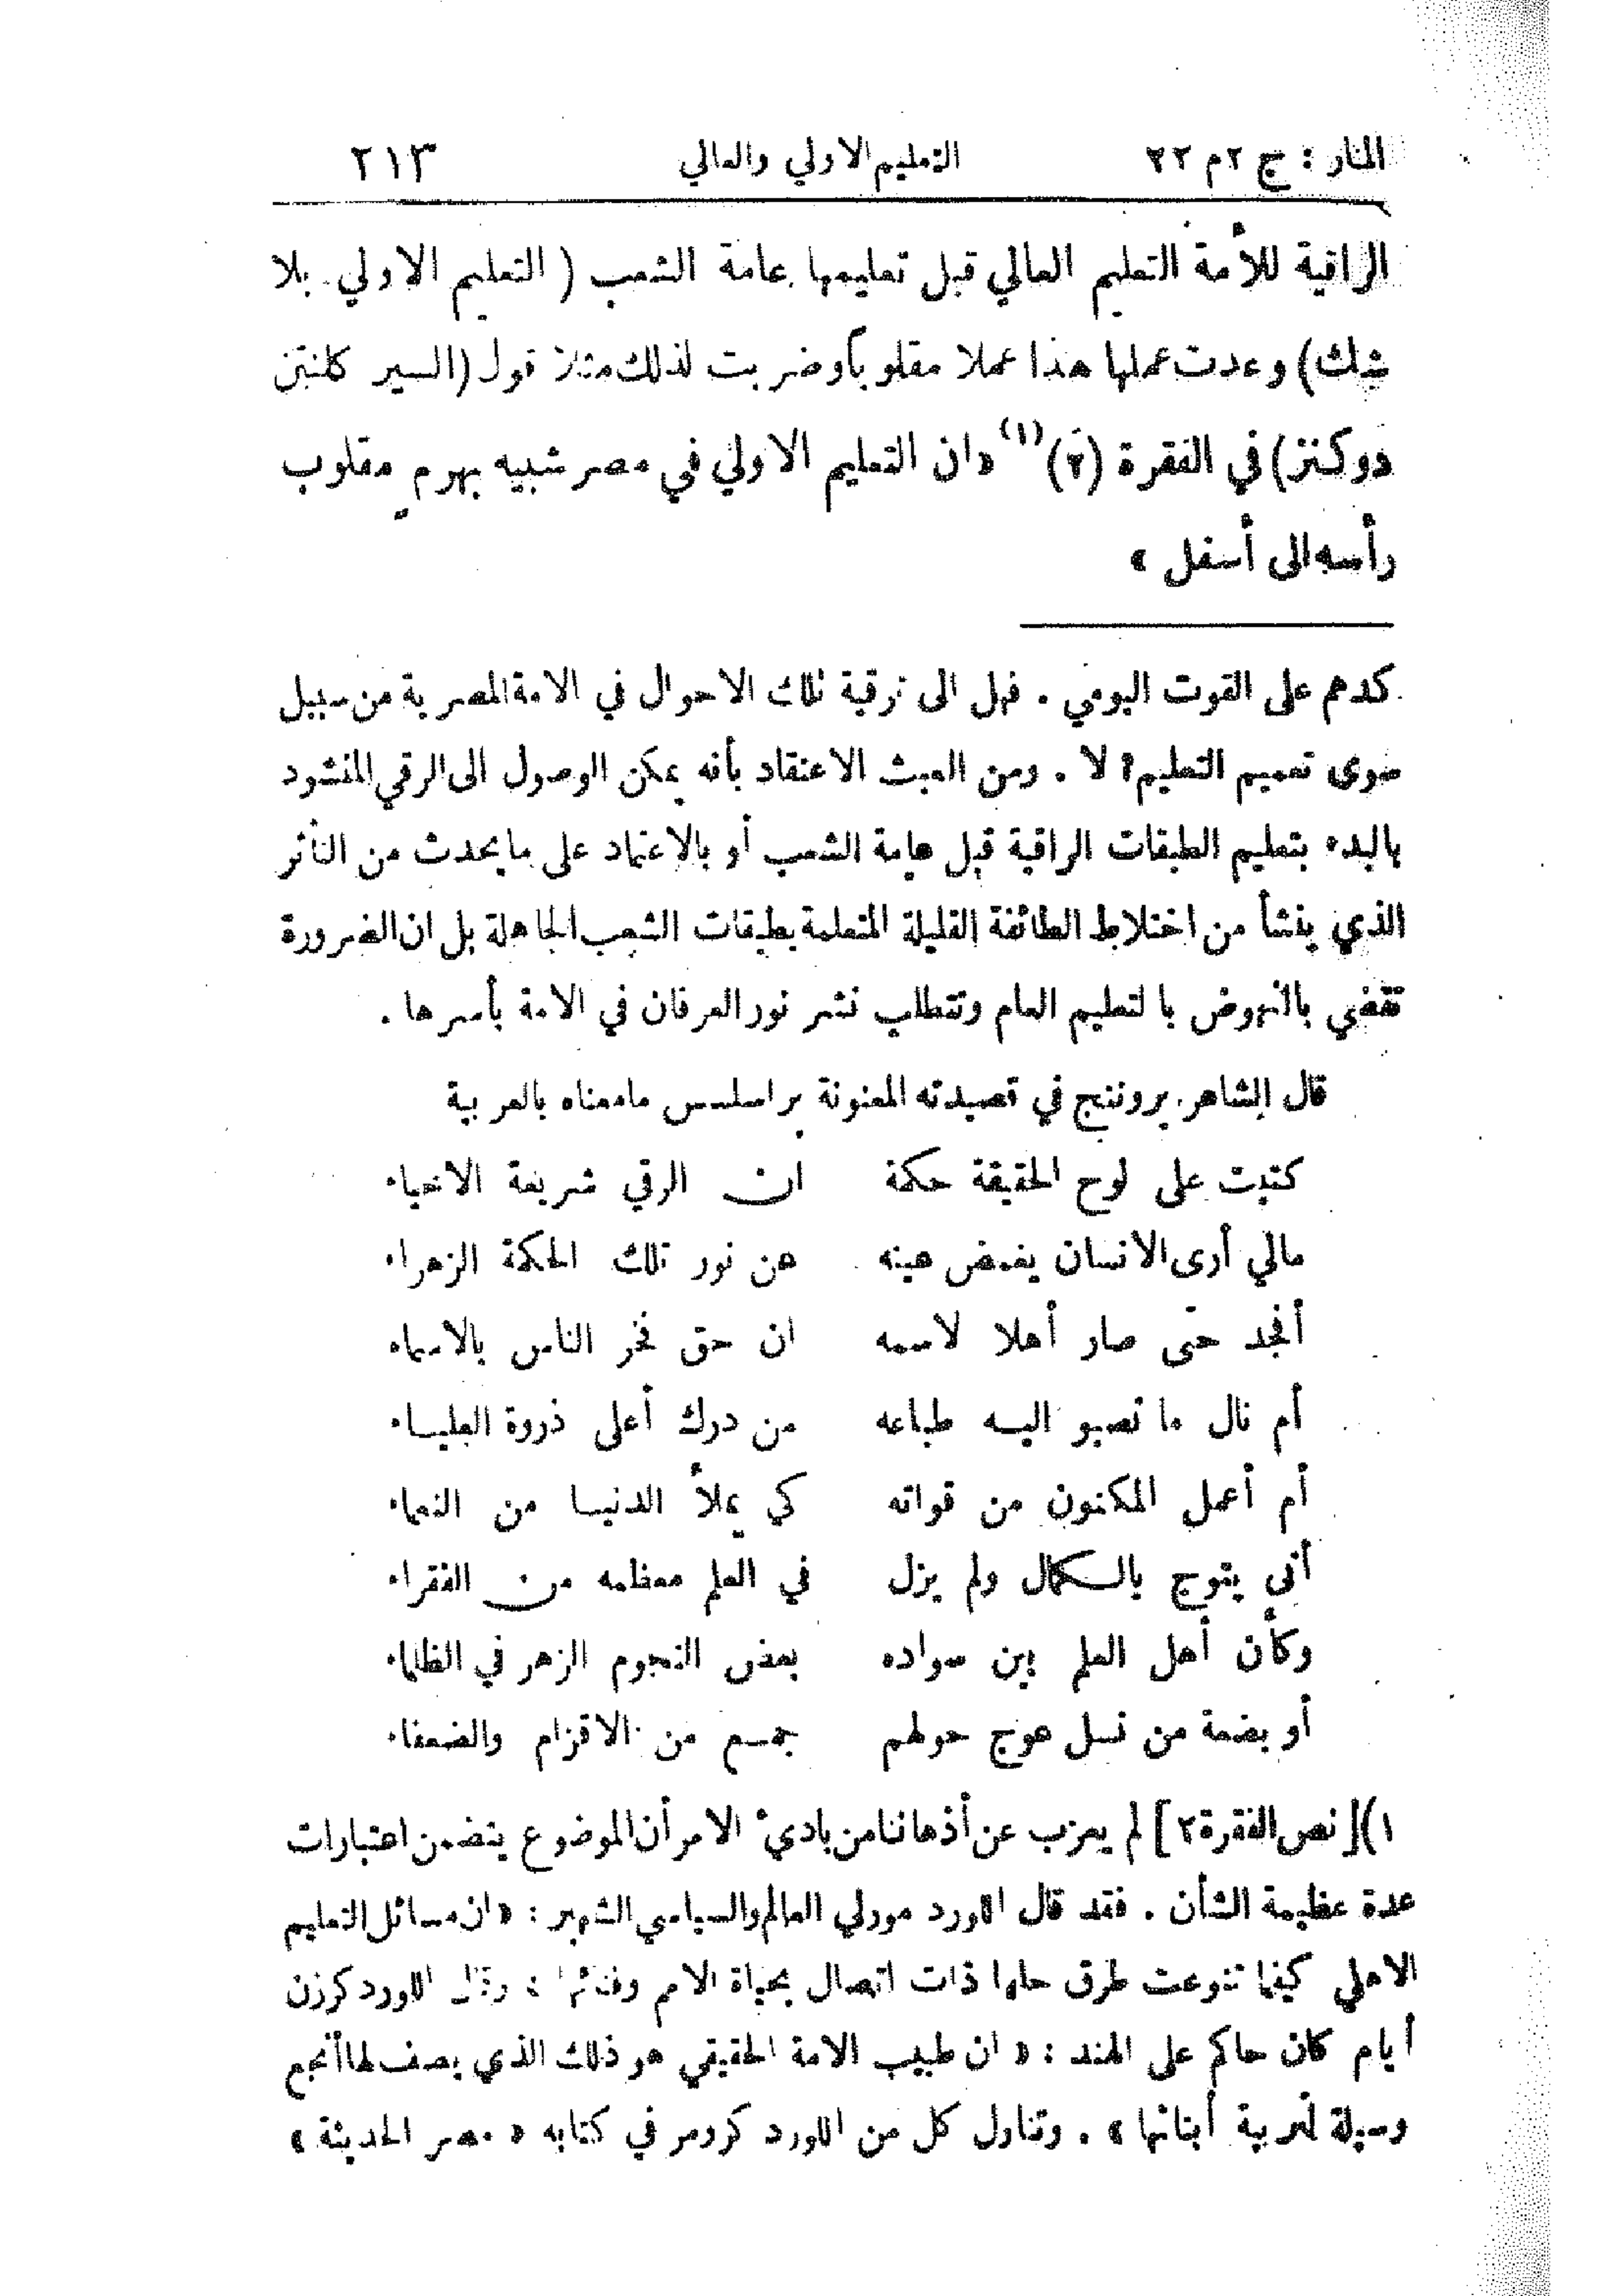 المنار : ج ٢ م ٢٢ التعليم الاولي والعالي ٢١٣
الراقية للأمة التعليم العالي قبل تعليمها عامة الشعب ( التعليم الاولي بلا
شك) وعدت عملها هذا عملا مقلوباً وضربت لذلك مثلا قول (السير كلنتن
دوكنز) في الفقرة (٢) (١) «ان التعليم الاولي في مصر شبيه بهرم مقلوب
رأسه الى أسفل »
كدهم على القوت اليومي . فهل الى ترقية تلك الاحوال في الامة المصرية من سبيل
سوى تعميم التعليم؟ لا . ومن العبث الاعتقاد بأنه يمكن الوصول الى الرقي المنشود
بالبدء بتعليم الطبقات الراقية قبل عامة الشعب أو بالاعتماد على ما يحدث من التأثر
الذي ينشأ من اختلاط الطائفة القليلة المتعلمة بطبقات الشعب الجاهلة بل ان الضرورة
تقضي بالنهوض بالتعليم العام وتتطلب نشر نور العرفان في الامة بأسرها .
قال الشاعر بروننج في قصيدته المعنونة براسلسس مامعناه بالعربية
كتبت على لوح الحقيقة حكمة ان الرقي شريعة الاحياء
مالي أرى الانسان يغمض عينه عن نور تلك الحكمة الزهراء
أفجد حتى صار أهلا لاسمه ان حق فخر الناس بالاسماء
أم نال ما تصبو اليه طباعه من درك أعلى ذروة العلياء
أم أعمل المكنون من قواته كي يملأ الدنيا من النعماء
أنى يتوج بالكمال ولم يزل في العلم معظمه من الفقراء
وكأن أهل العلم بين سواده بعض النجوم الزهر في الظلماء
أو بضعة من نسل عوج حولهم جمع من الاقزام والضعفاء
١)[نص الفقرة ٢] لم يعزب عن أذهاننا من بادئ الامر أن الموضوع يتضمن اعتبارات
عدة عظيمة الشأن . فقد قال اللورد مورلي العالم والسياسي الشهير : «ان مسائل التعليم
الاهلي كيفما تنوعت طرق حلها ذات اتصال بحياة الامم وفنائها » وقال اللورد كرزن
أيام كان حاكم على الهند : « ان طبيب الامة الحقيقي هو ذلك الذي يصف لها أنجع
وسيلة لتربية أبنائها » . وتناول كل من اللورد كرومر في كتابه « مصر الحديثة »